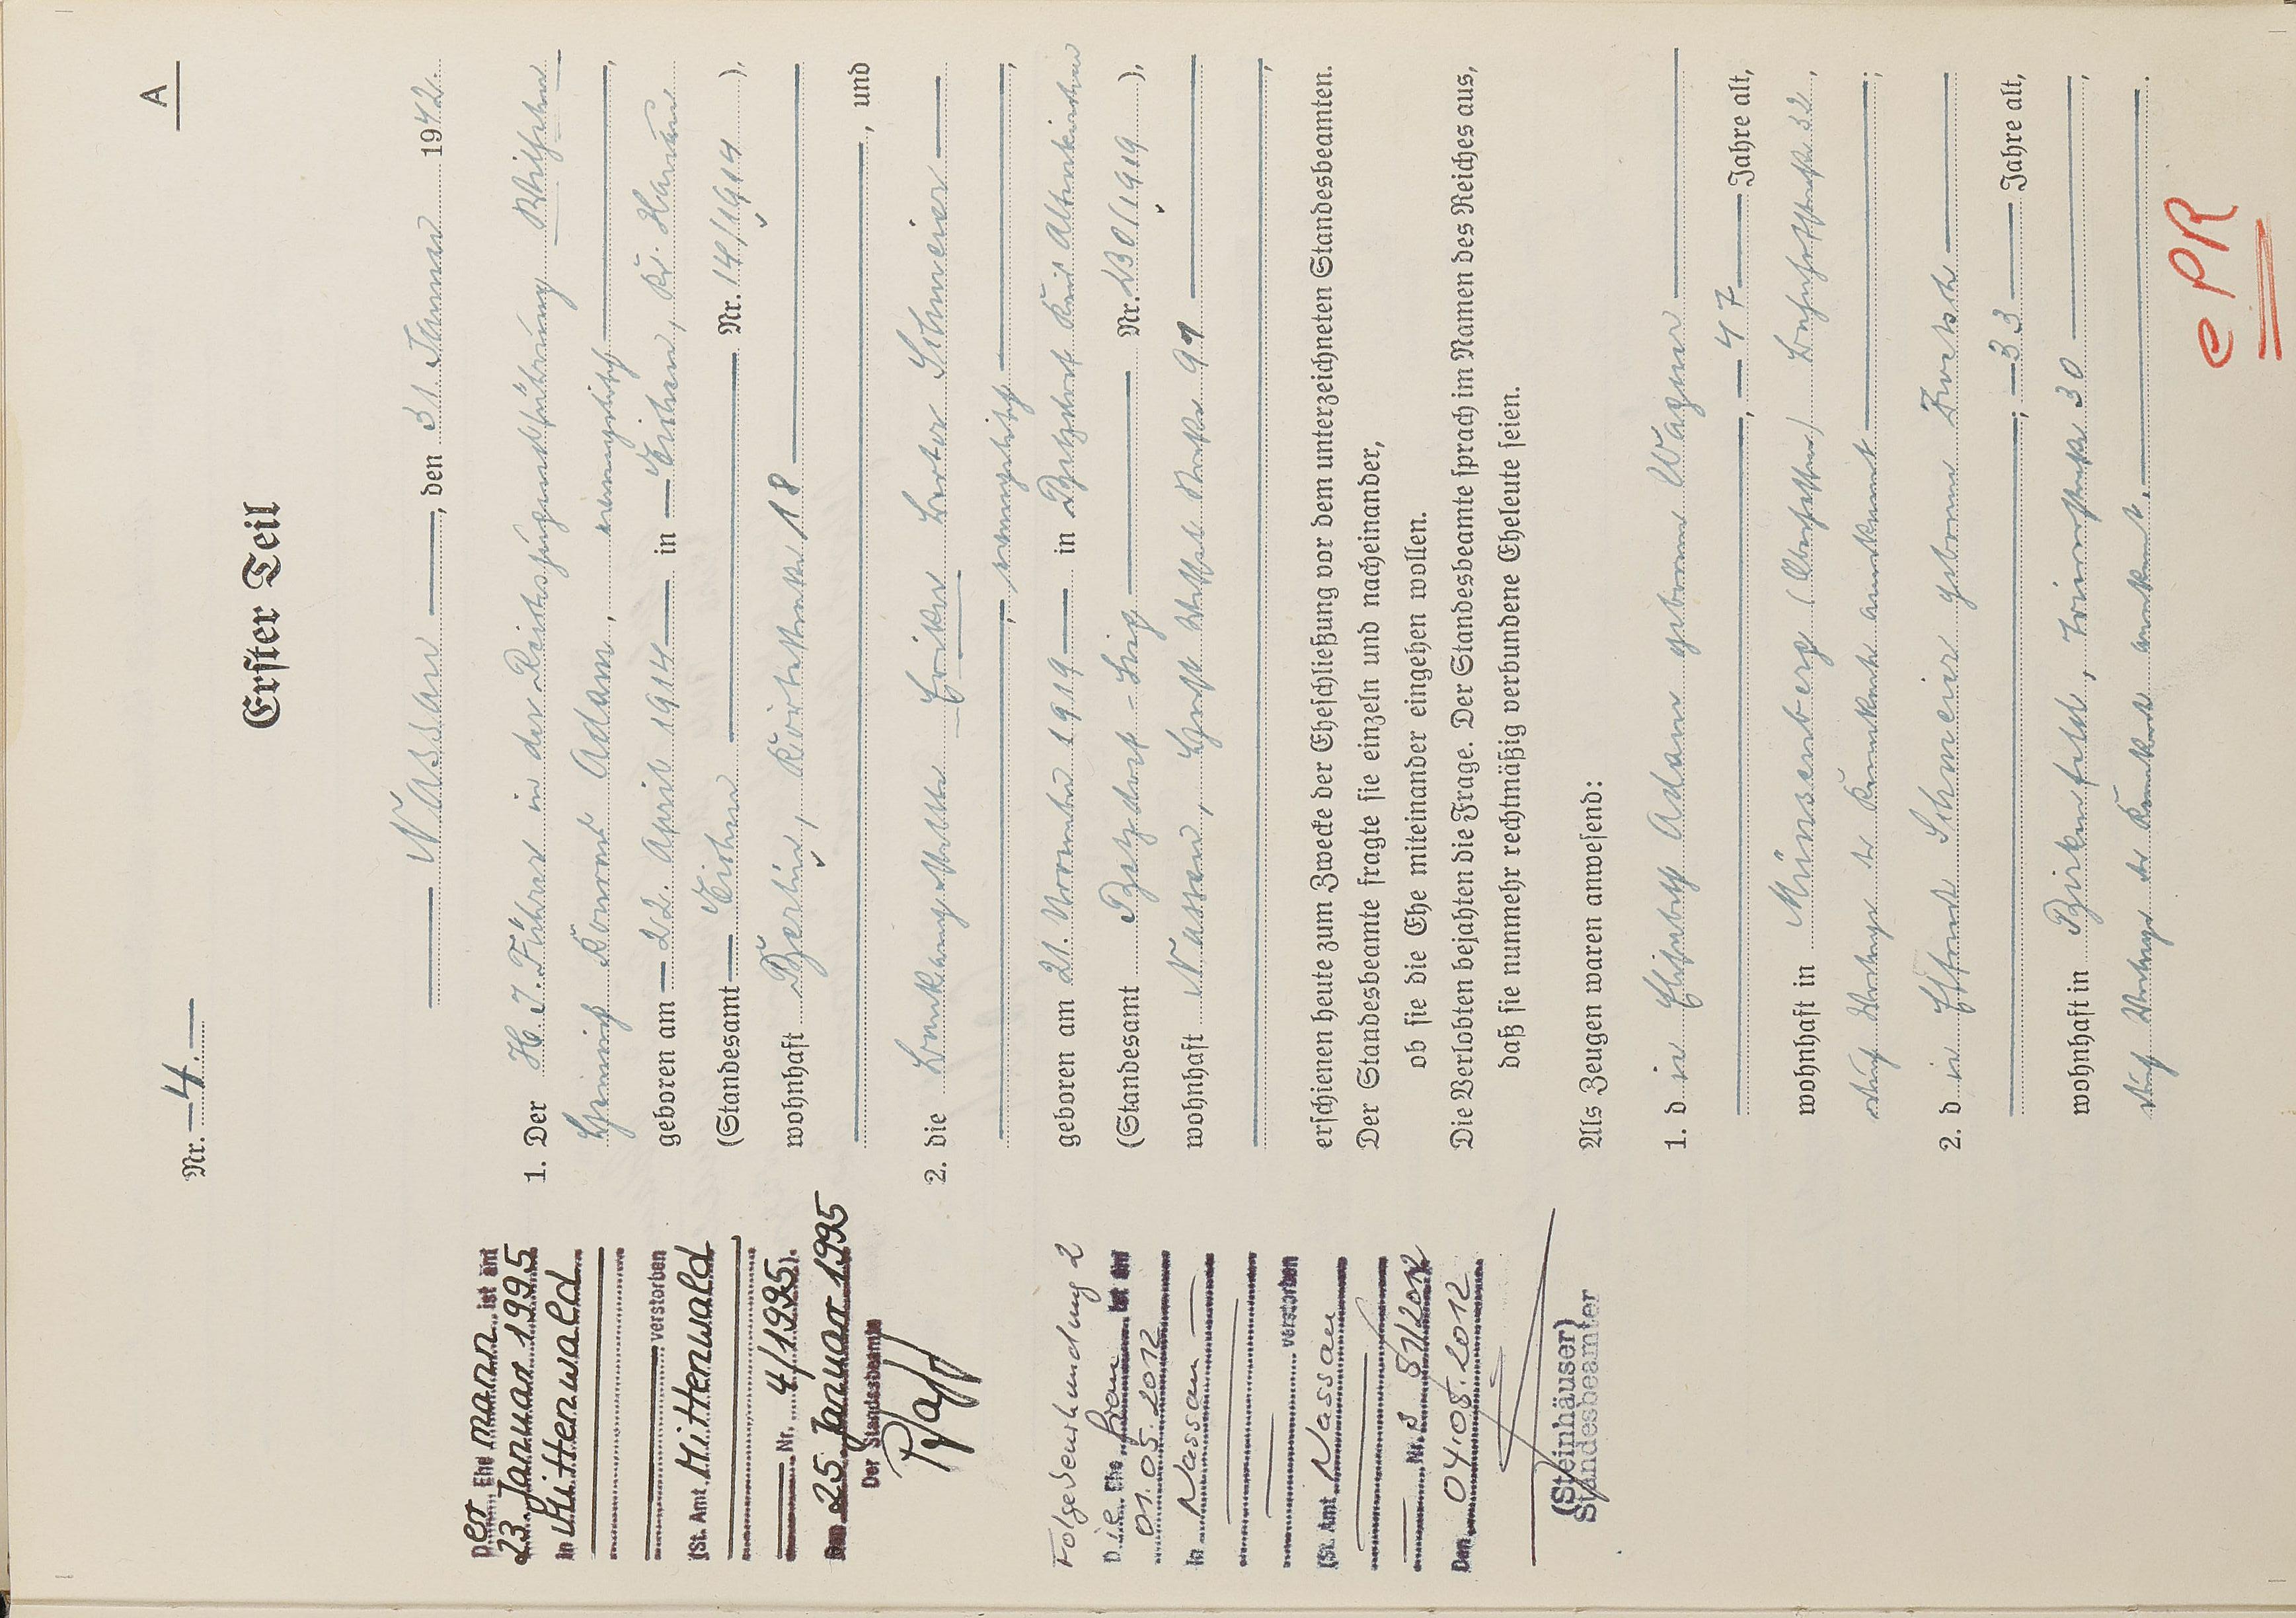 A
Nr. 4.
Erster Teil
Nassau, den 31. Januar 1942.
1. Der H. J. Führer in der Reichsjugendführung Wilhelm
Heinrich Konrad Adam,
geboren am 22. April 1914 in Eichen, Kr. Hanau
(Standesamt Eichen Nr. 14/1914),
wohnhaft Berlin,
, und
2. die Erika Berta Schmeier
,
geboren am 21. November 1919 in
(Standesamt Nr. 130/1919),
wohnhaft Nassau,
,
erschienen heute zum Zwecke der Eheschließung vor dem unterzeichneten Standesbeamten.
Der Standesbeamte fragte sie einzeln und nacheinander,
ob sie die Ehe miteinander eingehen wollen.
Die Verlobten bejahten die Frage. Der Standesbeamte sprach im Namen des Reiches aus,
daß sie nunmehr rechtmäßig verbundene Eheleute seien.
Als Zeugen waren anwesend:
1. die Elisabeth Adam geborene Wagner
, 47 Jahre alt,
wohnhaft in Münzenberg (Oberhessen) Bahnhofstraße 32,
durch Vorlage der Kennkarte anerkannt;
2. die Schmeier geborene
; 33 Jahre alt,
wohnhaft in Birkenfeld, 30,
durch Vorlage der Kennkarte anerkannt.
e PR
Der Ehemann ist am
23. Januar 1995
in Mittenwald
verstorben
(St. Amt Mittenwald
Nr. 4/1995).
Den 25. Januar 1995
Der Standesbeamte
Pfaff
Folgebeurkundung 2
Die Ehefrau ist am
01.05.2012
in Nassau
verstorben
(St. Amt Nassau
Nr. S 87/2012
Den 04.05.2012
(Steinhäuser)
Standesbeamter